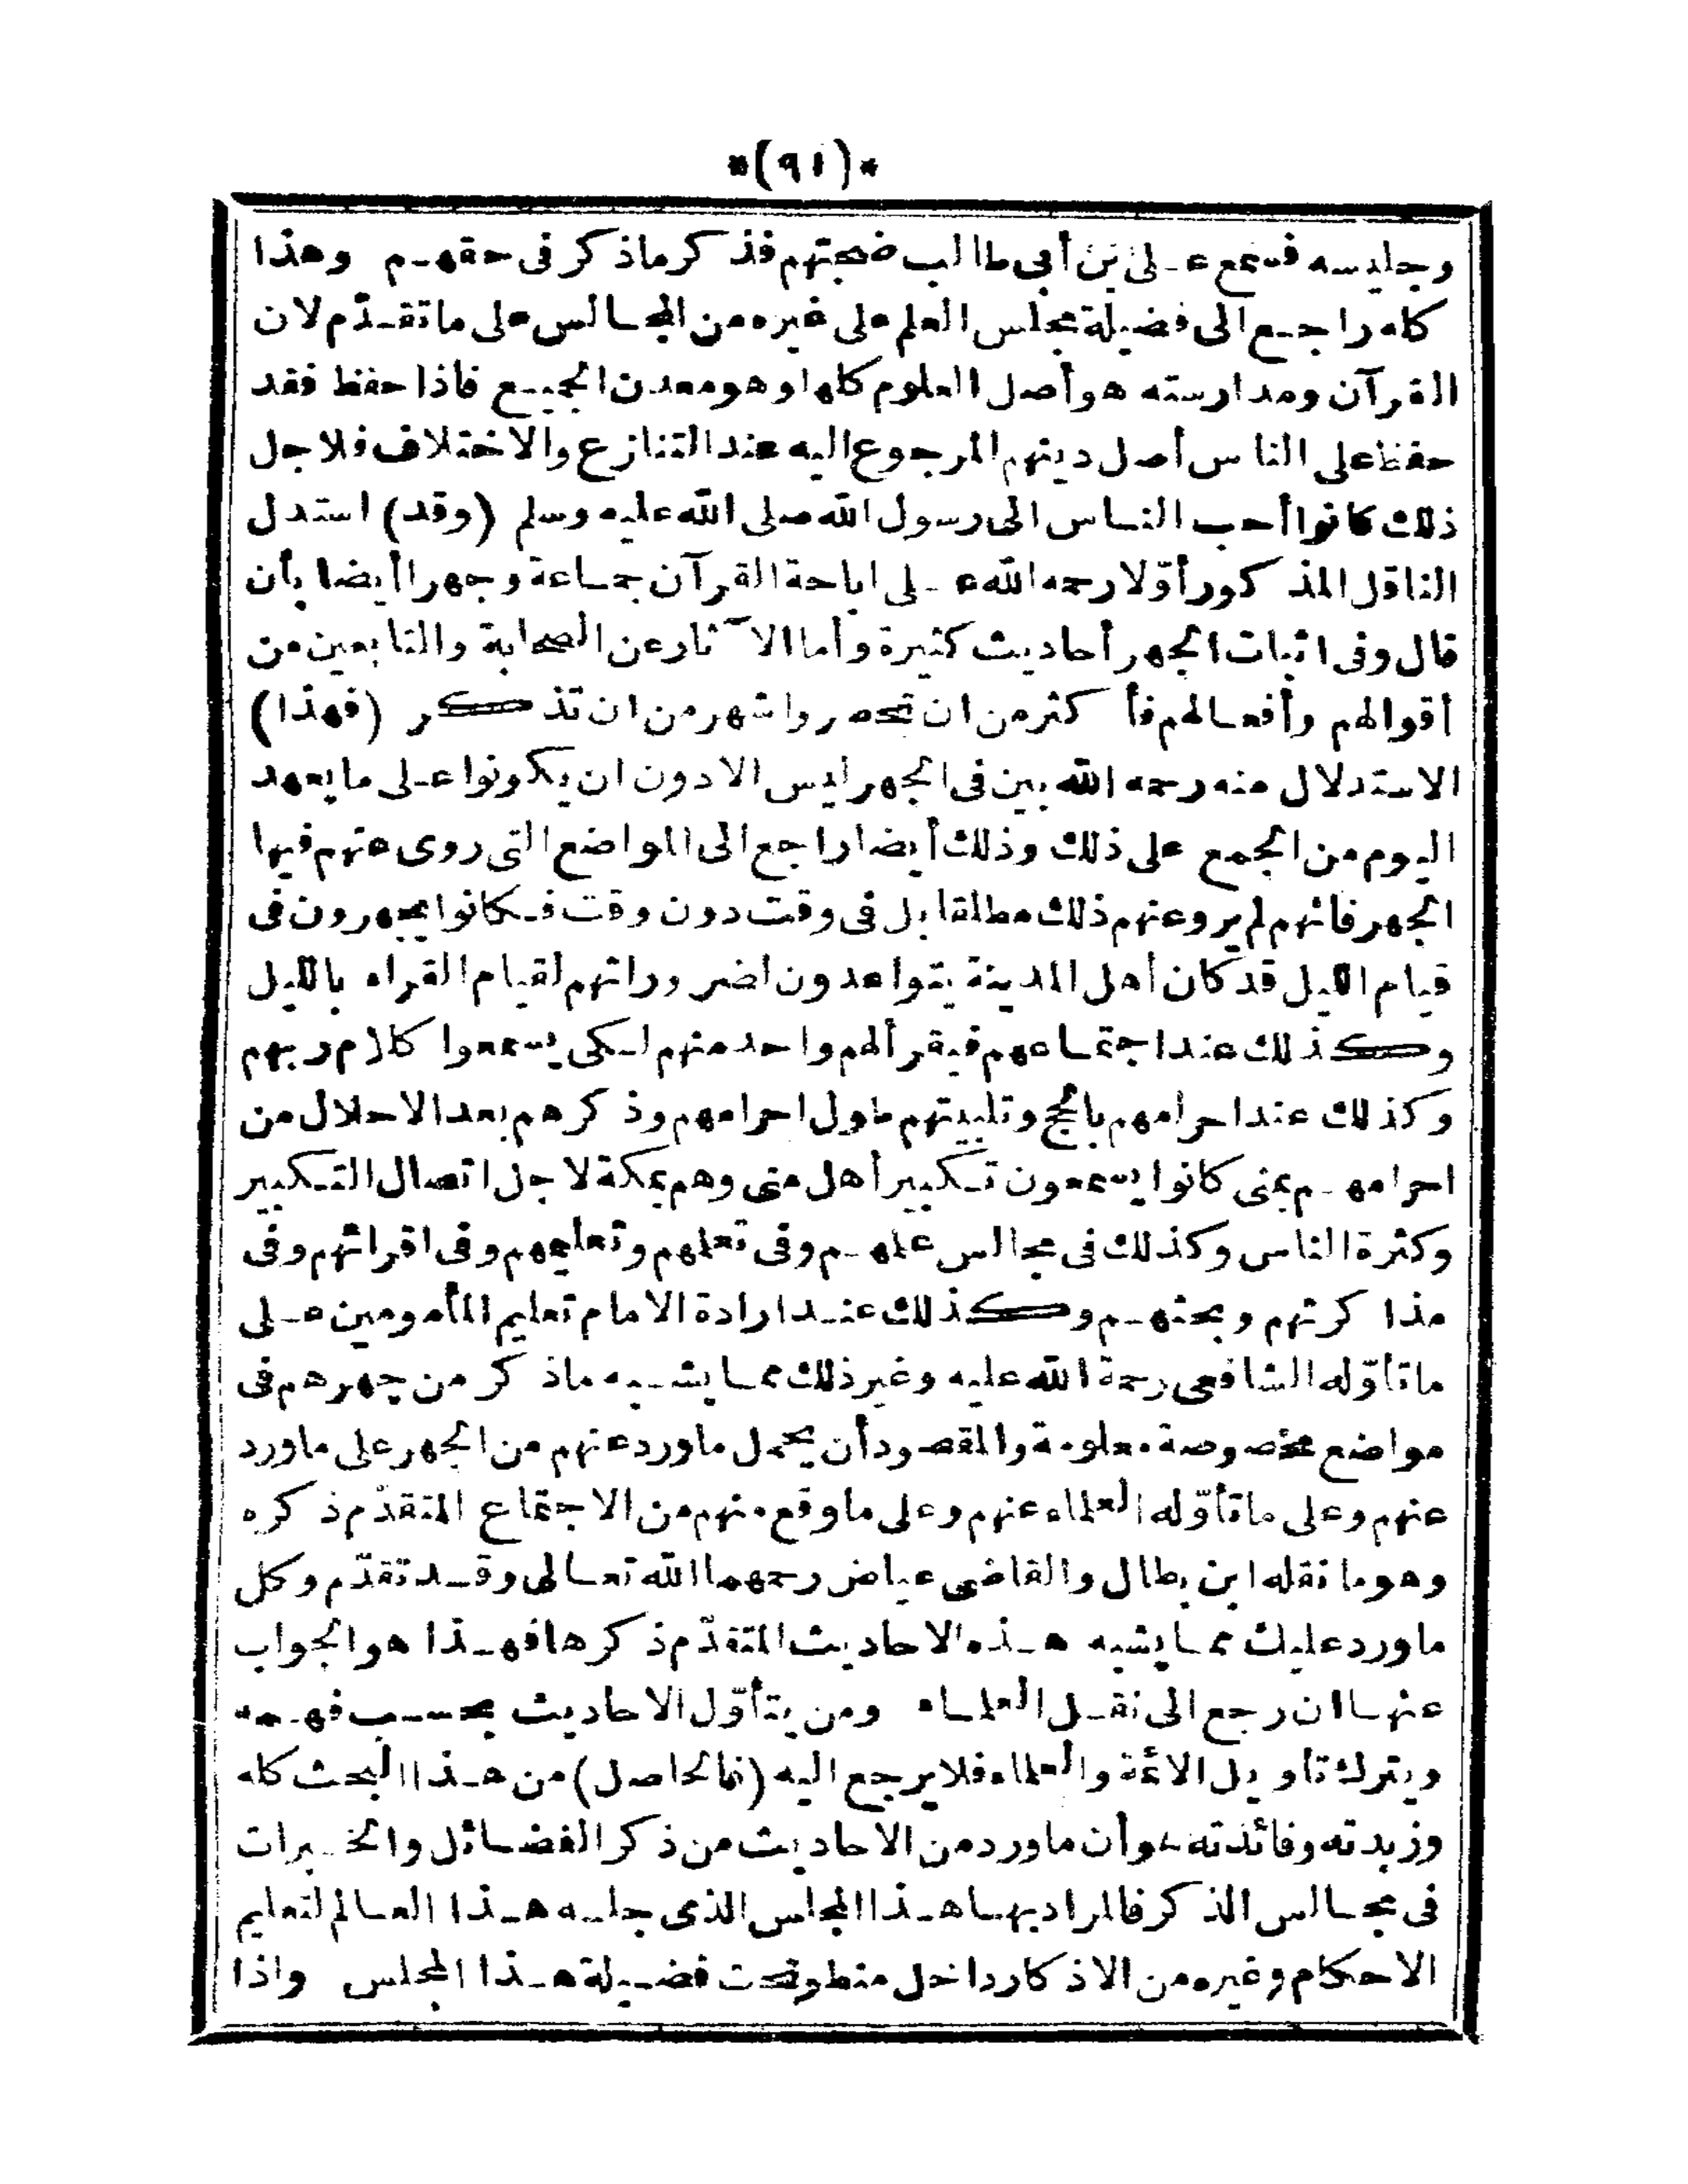 *(٩١)*
وجليسه فسمع علىّ بن أبى طالب ضجتهم فذكر ماذكر فى حقهم وهذا
كله راجع الى فضيلة مجلس العلم على غيره من المجالس على ماتقدّم لان
القرآن ومدارسته هو أصل العلوم كلها وهو معدن الجميع فاذا حفظ فقد
حفظ على الناس أصل دينهم المرجوع اليه عند التنازع والاختلاف فلاجل
ذلك كانوا أحب الناس الى رسول الله صلى الله عليه وسلم (وقد) استدل
الناقل المذكور أوّلا رحمه الله على اباحة القرآن جماعة وجهرا أيضا بأن
قال وفى اثبات الجهر أحاديث كثيرة وأما الآثار عن الصحابة والتابعين من
أقوالهم وأفعالهم فأكثر من ان تحصر واشهر من ان تذكر (فهذا)
الاستدلال منه رحمه الله بين فى الجهر ليس الا دون ان يكونوا على ما يعهد
اليوم من الجمع على ذلك وذلك أيضا راجع الى المواضع التى روى عنهم فيها
الجهر فانهم لم يرو عنهم ذلك مطلقا بل فى وقت دون وقت فكانوا يجهرون فى
قيام الليل قد كان أهل المدينة يتواعدون لضروراتهم لقيام القراء بالليل
وكذلك عند اجتماعهم فيقرأ لهم واحد منهم لكى يسمعوا كلام ربهم
وكذلك عند احرامهم بالحج وتلبيتهم طول احرامهم وذكرهم بعد الاحلال من
احرامهم بمنى كانوا يسمعون تكبير أهل منى وهم بمكة لاجل اتصال التكبير
وكثرة الناس وكذلك فى مجالس علمهم وفى تعلمهم وتعليمهم وفى اقرائهم وفى
مذاكرتهم وبحثهم وكذلك عند ارادة الامام تعليم المأمومين على
ماتأوّله الشافعى رحمة الله عليه وغير ذلك مما يشبه ماذكر من جهرهم فى
مواضع مخصوصة معلومة والمقصود أن يحمل ماورد عنهم من الجهر على ماورد
عنهم وعلى ماتأوّله العلماء عنهم وعلى ماوقع منهم من الاجتماع المتقدّم ذكره
وهو ما نقله ابن بطال والقاضى عياض رحمهما الله تعالى وقد تقدّم وكل
ماورد عليك مما يشبه هذه الاحاديث المتقدّم ذكرها فهذا هو الجواب
عنها ان رجع الى نقل العلماء ومن يتأوّل الاحاديث بحسب فهمه
ويترك تأويل الائمة والعلماء فلا يرجع اليه (فالحاصل) من هذا البحث كله
وزبدته وفائدته هو أن ماورد من الاحاديث من ذكر الفضائل والخيرات
فى مجالس الذكر فالمراد بها هذا المجلس الذى جلسه هذا العالم لتعليم
الاحكام وغيره من الاذكار داخل منطو تحت فضيلة هذا المجلس واذا